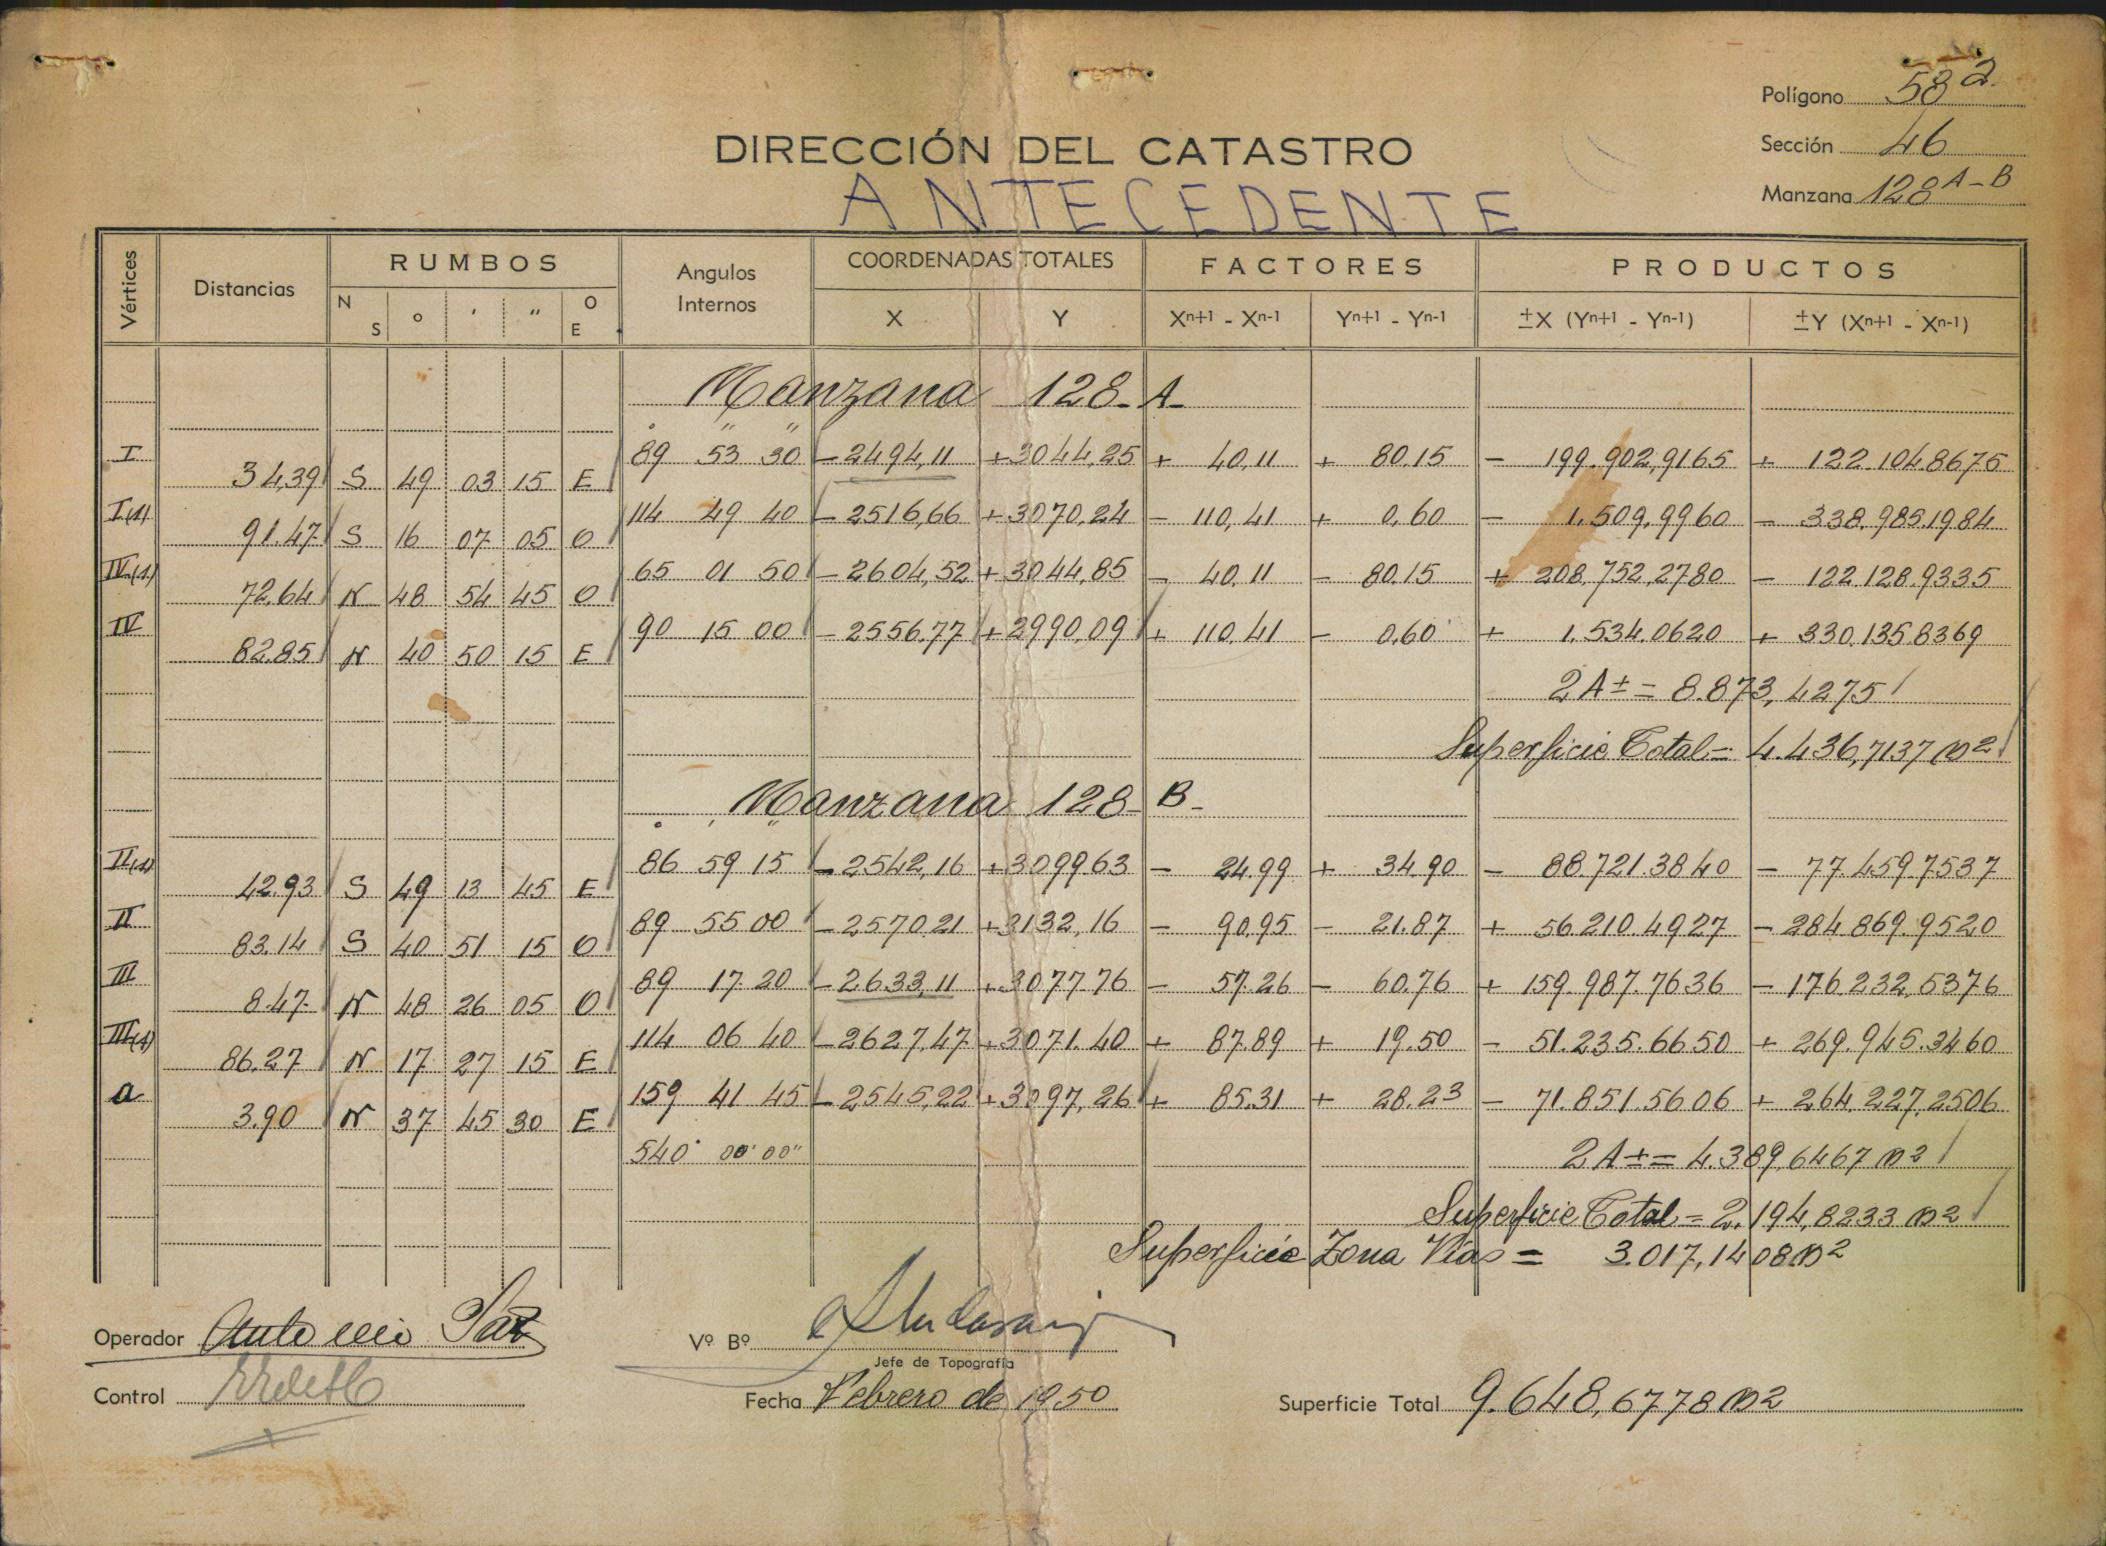 Polígono 58 a.
Sección 46
Manzana 128 A-B
DIRECCIÓN DEL CATASTRO
ANTECEDENTE
Vértices Distancias RUMBOS Angulos Internos COORDENADAS TOTALES FACTORES PRODUCTOS
N S ° ' " O E X Y Xn+1 - Xn-1 Yn+1 - Yn-1 ±X (Yn+1 - Yn-1) ±Y (Xn+1 - Xn-1)
Manzana 128-A-
° " "
I 89 53 30 -2494,11 +3044,25 + 40,11 + 80.15 - 199.902,9165 + 122.104.8675
34,39 S 49 03 15 E
I(1) 114 49 40 -2516,66 +3070,24 - 110,41 + 0,60 - 1.509,9960 - 338.985.1984
91.47 S 16 07 05 O
IV(1) 65 01 50 -2604,52 +3044,85 - 40.11 - 80.15 + 208.752,2780 - 122.128.9335
72,64 N 48 54 45 O
IV 90 15 00 -2556.77 +2990,09 + 110.41 - 0,60 + 1.534.0620 + 330.135.8369
82.85 N 40 50 15 E
2A± = 8.873,4275
Superficie Total = 4.436,7137 m2
Manzana 128- B-
° ' "
II(1) 86 59 15 -2542,16 +309963 - 24.99 + 34.90 - 88.721.3840 - 77.459.7537
42.93 S 49 13 45 E
II 89 55 00 -2570.21 +3132,16 - 90.95 - 21.87 + 56.210.4927 - 284.869.9520
83.14 S 40 51 15 O
III 89 17 20 -2633,11 +3077.76 - 57.26 - 60.76 + 159.987.7636 - 176.232,5376
8.47 N 48 26 05 O
III(1) 114 06 40 -2627,47 +3071.40 + 87.89 + 19.50 - 51.235.6650 + 269.945.3460
86.27 N 17 27 15 E
a 159 41 45 -2545,22 +3097,26 + 85.31 + 28.23 - 71.851.5606 + 264.227,2506
3.90 N 37 45 30 E
540° 00' 00" 2A± = 4.389 6467 m2
Superficie Total = 2.194,8233 m2
Superficie Zona Vías = 3.017,1408 m2
Operador Antonio Paz
Vº Bº
Jefe de Topografía
Control
Fecha Febrero de 1950
Superficie Total 9.648,6778 m2